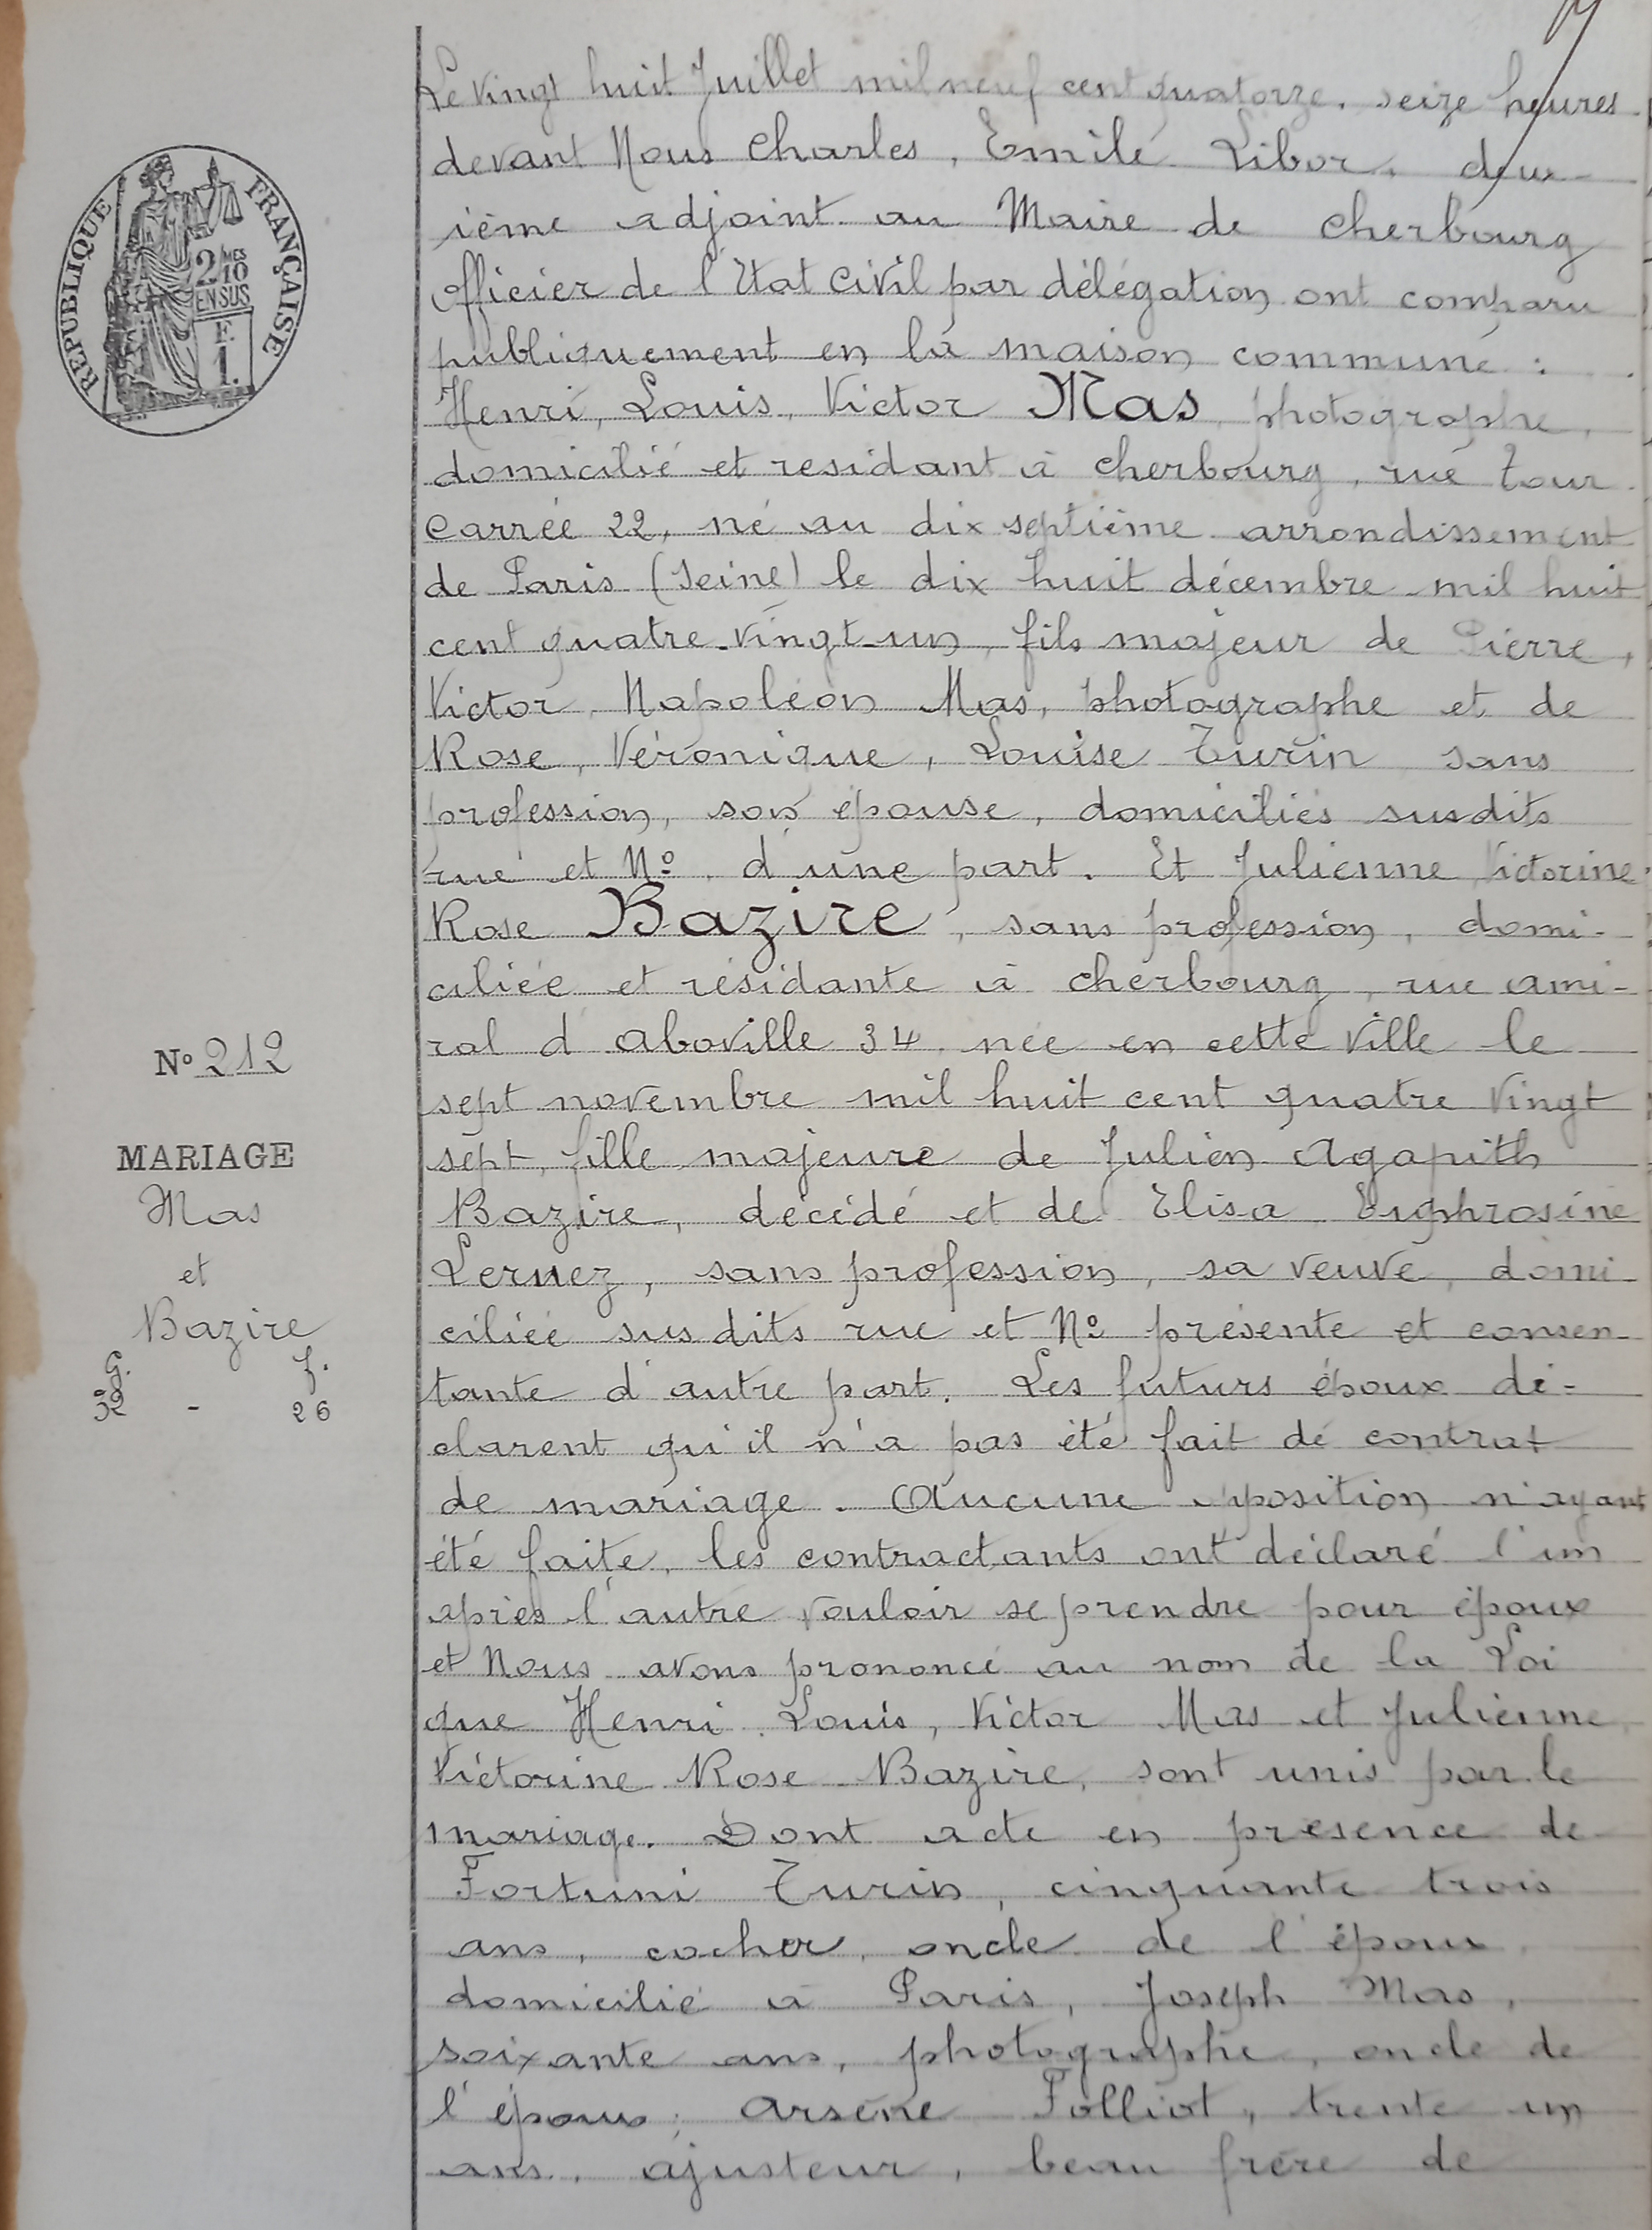 RÉPUBLIQUE FRANÇAISE
2 MES
10
EN SUS
F.
1.
Le vingt huit Juillet mil neuf cent quatorze, seize heures
devant Nous Charles, Emile Libor, deux-
ième adjoint au Maire de Cherbourg
officier de l'Etat civil par délégation ont comparu
publiquement en la maison commune :
Henri, Louis, Victor Mas, photographe,
domicilié et residant à Cherbourg, rue Tour
Carrée 22, né au dix septième arrondissement
de Paris (Seine) le dix huit décembre mil huit
cent quatre-vingt-un, fils majeur de Pierre,
Victor, Napoléon Mas, photographe et de
Rose, Véronique, Louise Turin sans
profession, son épouse, domiciliés susdits
rue et No. d'une part. Et Julienne Victorine
Rose Bazire, sans profession, domi-
ciliée et résidante à Cherbourg, rue ami-
ral d'Aboville 34 née en cette ville le
sept novembre mil huit cent quatre vingt
sept, fille majeure de Julien Agapith
Bazire, décédé et de Elisa Euphrosine
Lernez, sans profession, sa veuve, domi
ciliée susdits rue et No présente et consen-
tante d'autre part. Les futurs époux dé-
clarent qu'il n'a pas été fait de contrat
de mariage. Aucune opposition n'ayant
été faite, les contractants ont déclaré l'un
après l'autre vouloir se prendre pour époux
et Nous avons prononcé au nom de la Loi
que Henri Louis, Victor Mas et Julienne,
Victorine Rose Bazire, sont unis par le
mariage. Dont acte en présence de
Fortuni Turin, cinquante trois
ans, cocher, oncle de l'époux,
domicilié à Paris, Joseph Mas,
soixante ans, photographe, oncle de
l'époux, Arsène Folliot, trente un
ans, ajusteur, beau frère de
No 212
MARIAGE
Mas
et
Bazire
G. f.
32 - 26